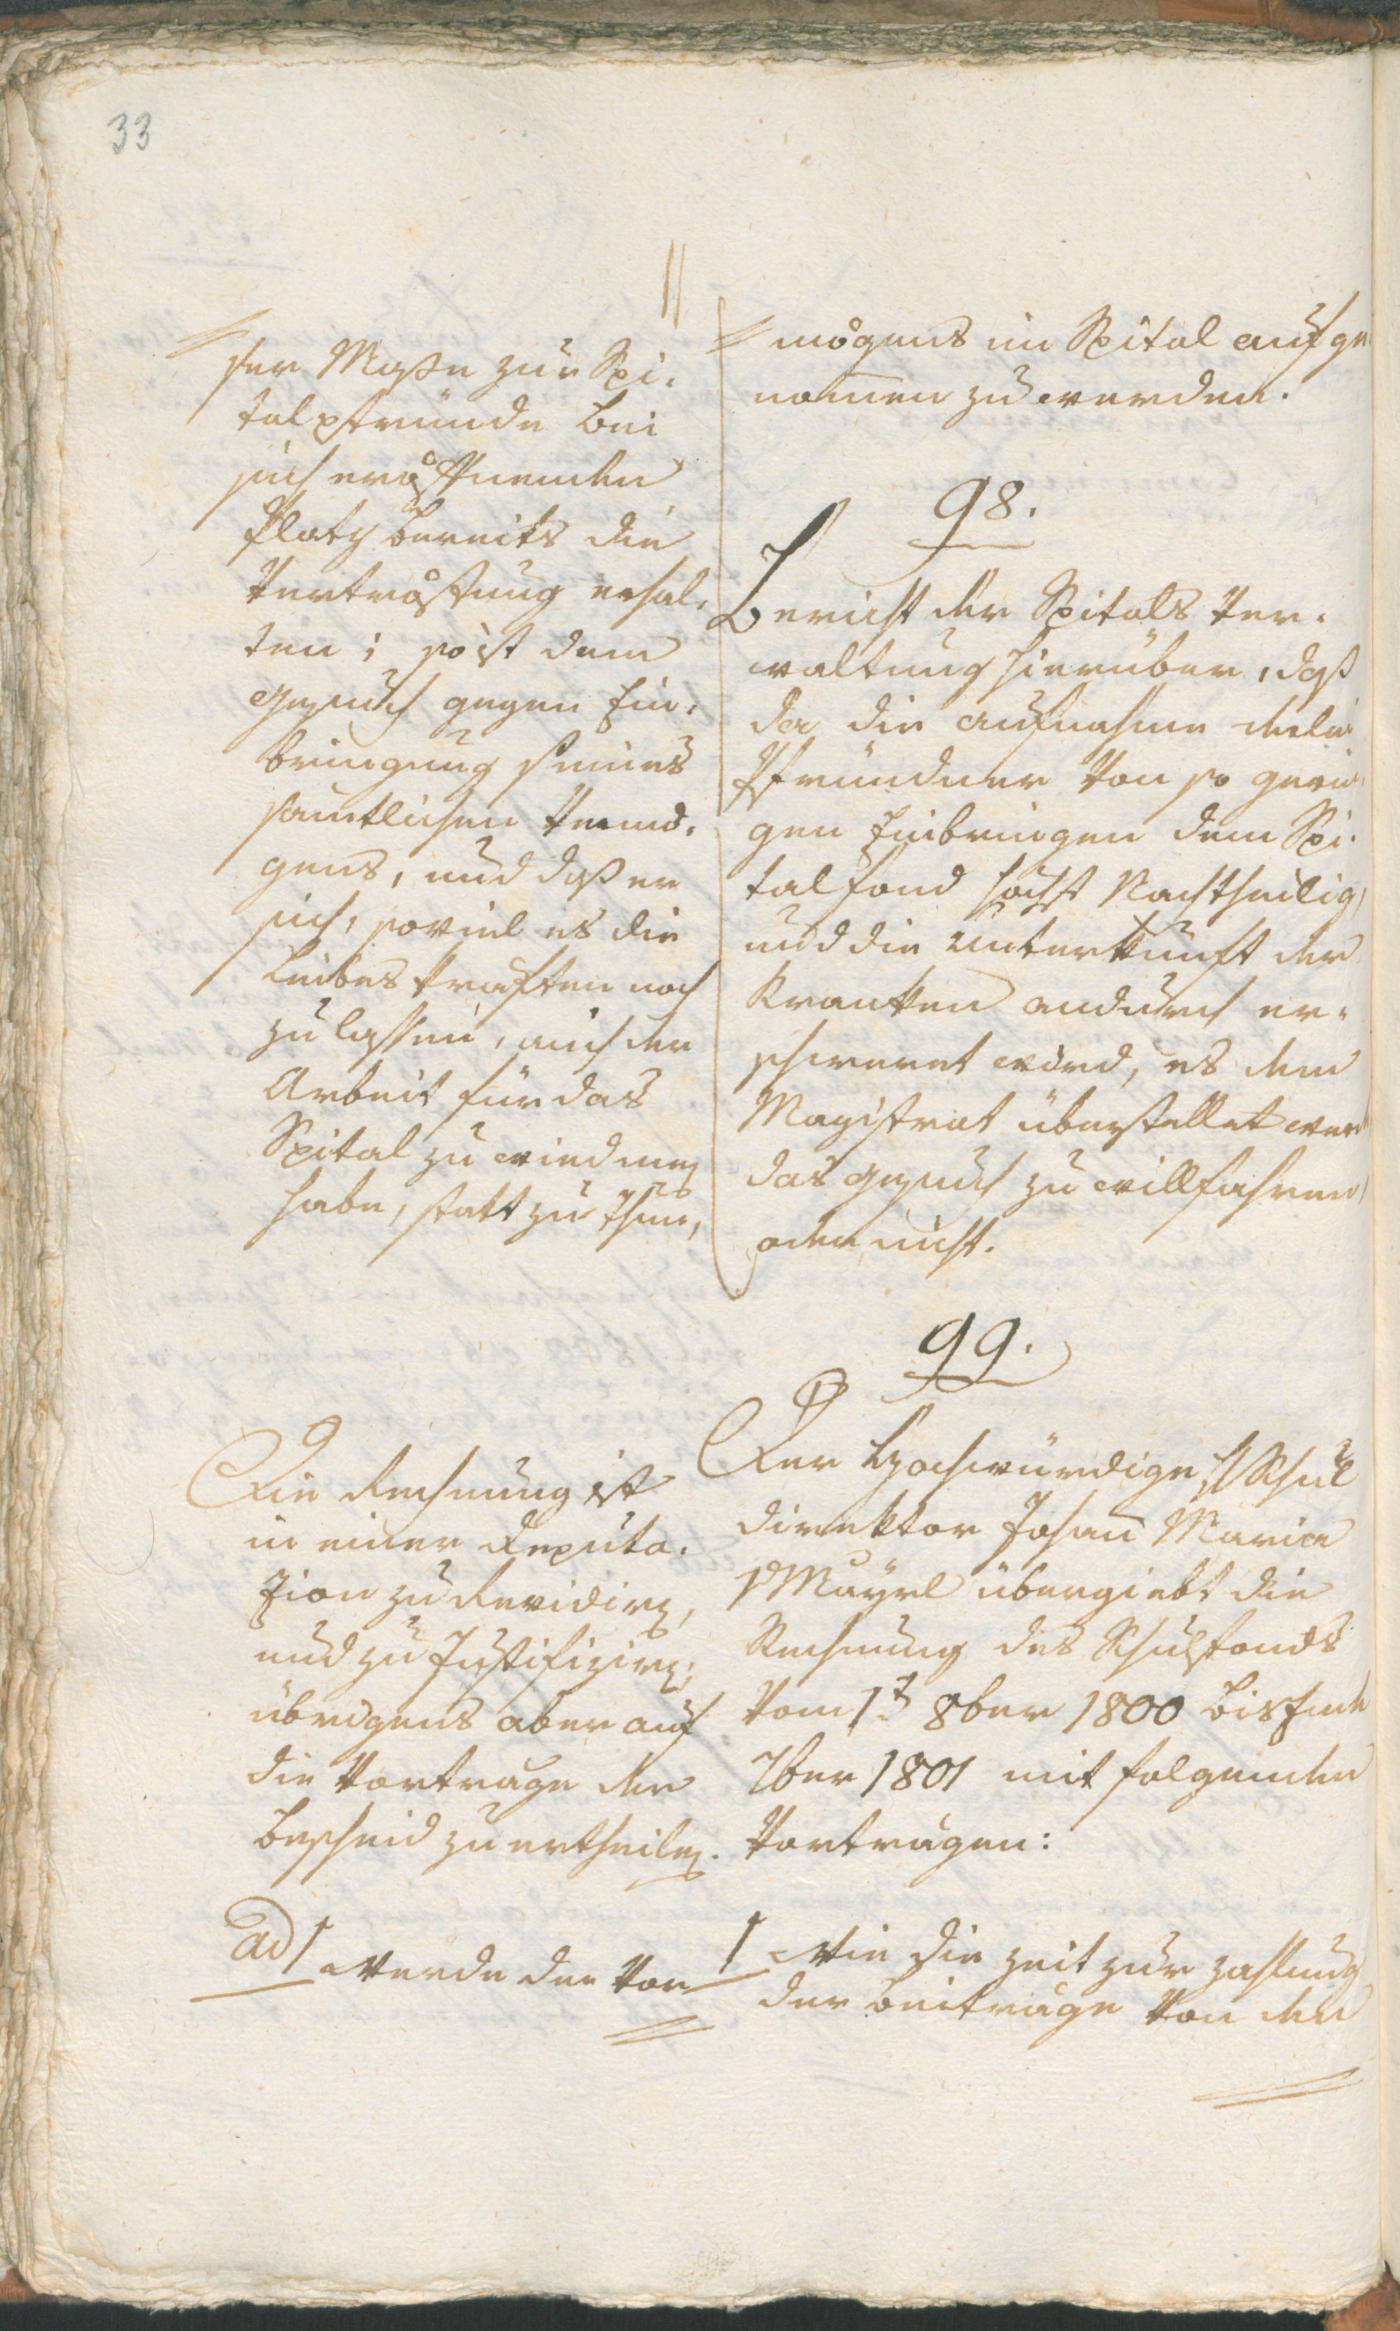 33
ser Maßen zur Spi-
talpfründe bei
sich eröffnenden
Platz bereits die
Vertröstung erhal-
ten; so ist dem
Gesuch gegen Ein-
bringung seines
sämtlichen Vermö-
gens, und daß er
sich, soviel es die
Leibeskräften noch
zulassen, auch der
Arbeit für das
Spital zu wiedmen
habe, statt zu thun,
Die Rechnung ist
in einer Deputa-
zion zu Revidiren,
und zu Justifiziren;
übrigens aber auf
die Vorträge der
Bescheid zu ertheilen.
ad 1 Werde der Vor
mögens im Spital aufge
nommen zu werden.
98.
Bericht der Spitals Ver-
waltung hierüber, daß
da die Aufnahme derlei
Pfründner von so gerin
gen Einbringen dem Spi-
talfond höchst Nachtheilig
und die Unterkunft der
Kranken andurch er-
schweret wird, es dem
Magistrat überstellet werd
das Gesuch zu willfahren
oder nicht.
99.
Der Hochwürdige H Schul
direktor Johann Maria
Mayrl übergiebt die
Rechnung des Schulfonds
vom 1t 8ber 1800 bis Ende
7ber 1801 mit folgenden
Vorträgen:
1 Wie die Zeit zur Zahlung
der Beiträge von den